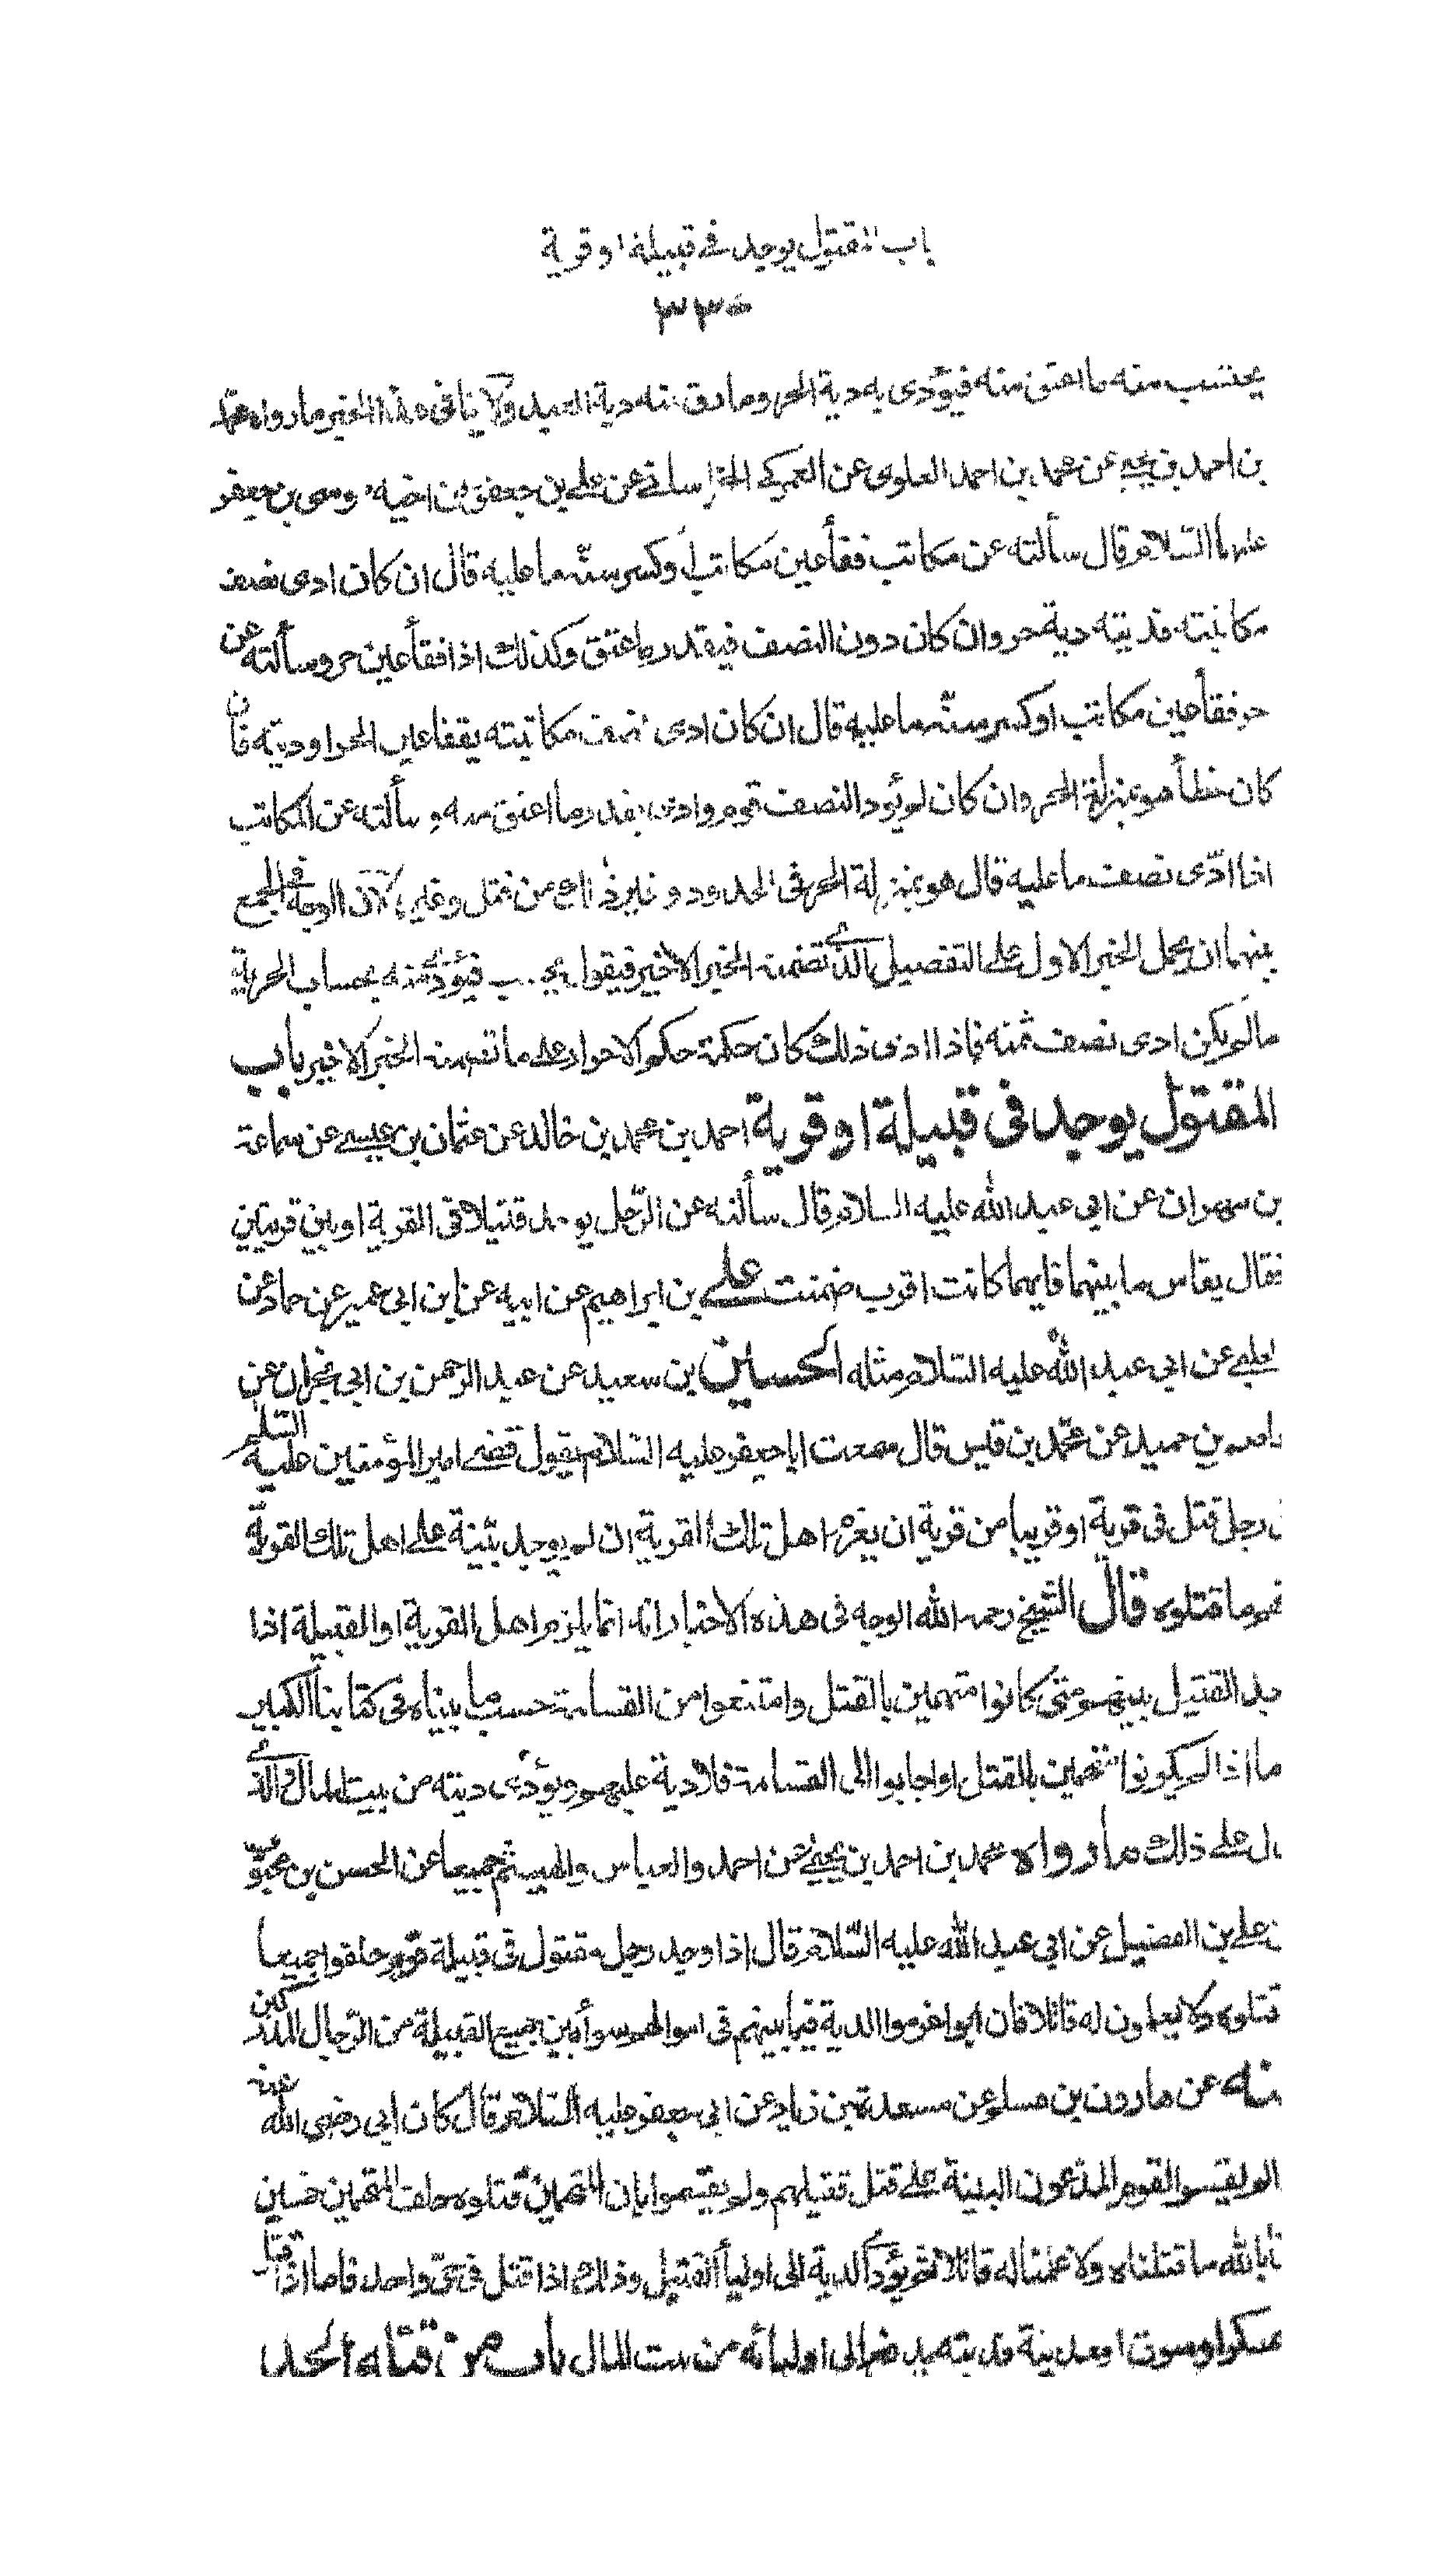 باب المقتول يوجد في قبيلة او قرية
٣٣٠
يحتسب منه ما اعتق منه فيؤدى به دية الحر وما رق منه دية العبد ولا ينافى هذا الخبر ما رواه محمد
بن احمد بن يحيى عن محمد بن احمد العلوى عن العمركي الخراساني عن علي بن جعفر عن اخيه موسى بن جعفر
عليهما السّلام قال سألته عن مكاتب فقأ عين مكاتب او كسر سنّه ما عليه قال ان كان ادى نصف
مكاتبته فديته دية حر وان كان دون النصف فبقدر ما عتق وكذلك اذا فقأ عين حر وسألته عن
حر فقأ عين مكاتب او كسر سنّه ما عليه قال ان كان ادى نصف مكاتبته يفقأ عين الحر او ديته فان
كان خطأ هو بمنزلة الحر وان كان لم يؤد النصف قوم وادى بقدر ما اعتق منه وسألته عن المكاتب
اذا ادّى نصف ما عليه قال هو بمنزلة الحر فى الحدود وغير ذلك من قتل وغيره لان الوجه فى الجمع
بينهما ان يحمل الخبر الاول على التفصيل الذى تضمنه الخبر الاخير فيقول يحسب فيؤدى منه بحساب الحرية
ما لم يكن ادى نصف ثمنه فاذا ادى ذلك كان حكمه حكم الاحرار على ما تضمنه الخبر الاخير باب
المقتول يوجد فى قبيلة او قرية احمد بن محمد بن خالد عن عثمان بن عيسى عن سماعة
بن مهران عن ابي عبد الله عليه السلام قال سألته عن الرّجل يوجد قتيلا فى القرية او بين قريتين
فقال يقاس ما بينهما فايهما كانت اقرب ضمنت علي بن ابراهيم عن ابيه عن ابن ابى عمير عن حماد عن
الحلبي عن ابي عبد الله عليه السّلام مثله الحسين بن سعيد عن عبد الرحمن بن ابي نجران عن
عاصم بن حميد عن محمّد بن قيس قال سمعت ابا جعفر عليه السّلام يقول قضى امير المؤمنين عليه السّلم
رجل قتل فى قرية او قريبا من قرية ان يغرم اهل تلك القرية ان لم يوجد بيّنة على اهل تلك القرية
هم ما قتلوه قال الشيخ رحمه الله الوجه فى هذه الاخبار انه انما يلزم اهل القرية او القبيلة اذا
وجد القتيل بينهم ومتى كانوا متهمين بالقتل وامتنعوا من القسامة حسب ما بيناه فى كتابنا الكبير
ما اذا لم يكونوا متهمين بالقتل او اجابوا الى القسامة فلا دية عليهم ويؤدى ديته من بيت المال والذى
يدل على ذلك ما رواه محمد بن احمد بن يحيى عن احمد والعباس والهيثم جميعا عن الحسن بن محبوب
عن علي بن الفضيل عن ابي عبد الله عليه السّلام قال اذا وجد رجل مقتول فى قبيلة قوم حلفوا جميعا
ما قتلوه ولا يعلمون له قاتلا فان ابوا اغرموا الدية فيما بينهم فى اموالهم سواء بين جميع القبيلة من الرّجال المدركين
عنه عن هارون بن مسلم عن مسعدة بن زياد عن ابي جعفر عليه السّلام قال كان ابي رضي الله عنه
اذا لم يقسم القوم المدّعون البينة على قتل قتيلهم ولم يقسموا بان المتهمين قتلوه حلف المتهمين خمسين
يمينا بالله ما قتلناه ولا علمنا له قاتلا ثم يؤدى الدية الى اولياء القتيل وذلك اذا قتل فى حى واحد فاما اذا قتل
فى عسكر او سوق او مدينة فديته يدفع الى اوليائه من بيت المال باب من قتله الحد